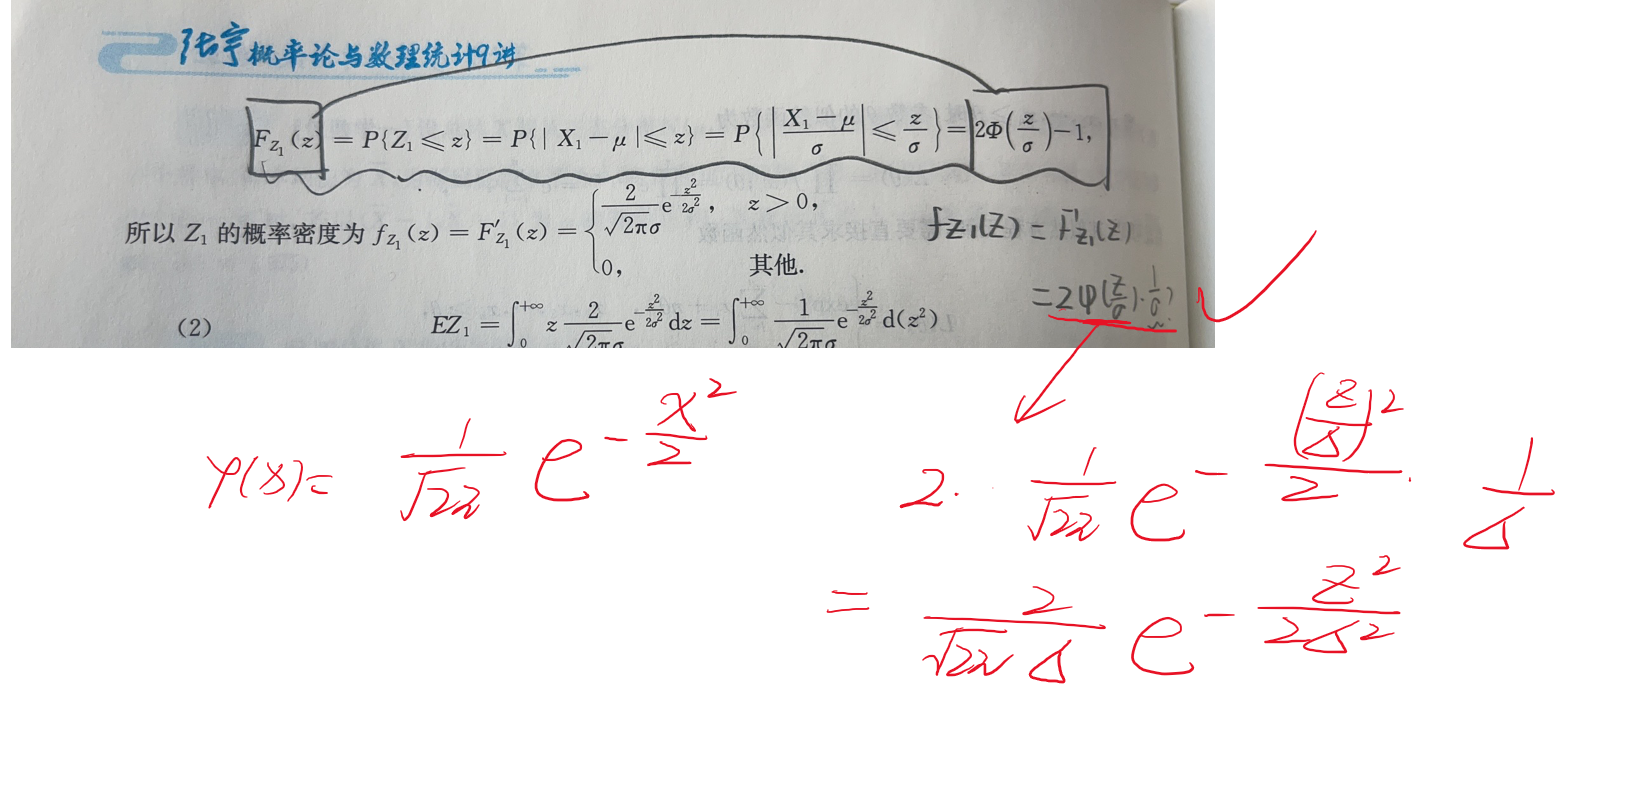 张宇概率论与数理统计9讲
F_{Z_1}(z) = P{Z_1 ≤ z} = P{| X_1 − μ | ≤ z} = P{|(X_1 − μ)/σ| ≤ z/σ} = 2Φ(z/σ) − 1,
所以 Z_1 的概率密度为 f_{Z_1}(z) = F′_{Z_1}(z) = { 2/(√(2π)σ) e^{−z²/(2σ²)}, z > 0,
0, 其他.
f_{Z_1}(z) = F′_{Z_1}(z)
= 2φ(z/σ)·1/σ
(2) EZ_1 = ∫_0^{+∞} z 2/(√(2π)σ) e^{−z²/(2σ²)} dz = ∫_0^{+∞} 1/(√(2π)σ) e^{−z²/(2σ²)} d(z²)
φ(x) = 1/√(2π) e^{−x²/2}
2 · 1/√(2π) e^{−(z/σ)²/2} · 1/σ
= 2/(√(2π)σ) e^{−z²/(2σ²)}